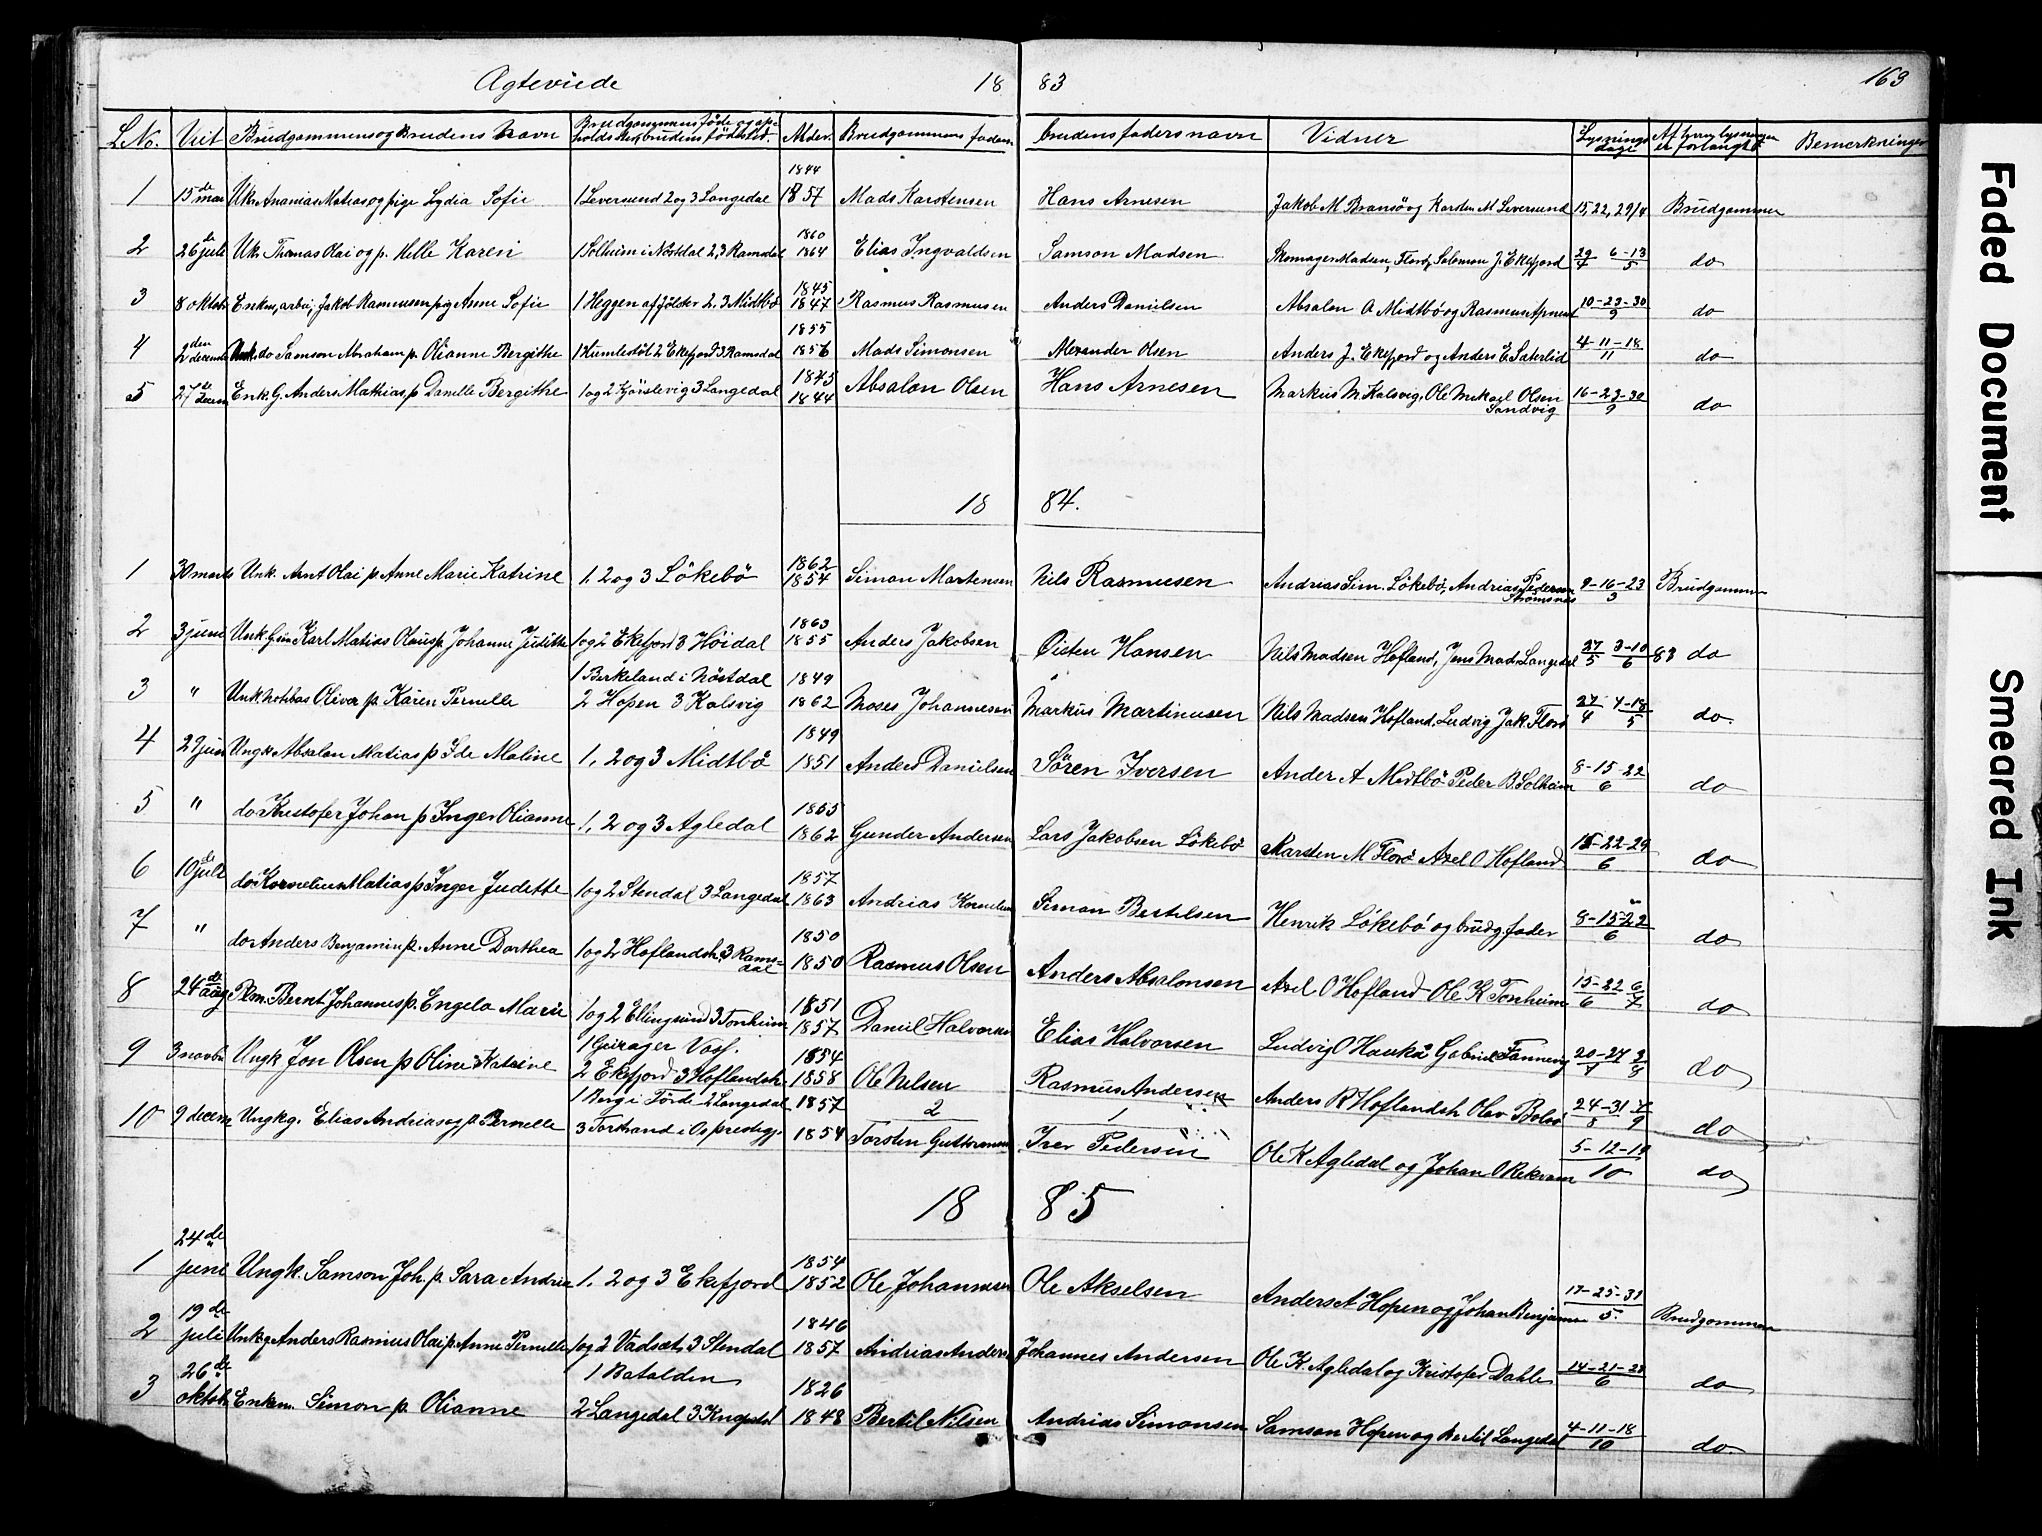 Agteviede 18 83 163
L No. Viet Brudgommens og brudens navn Brudgommens føde og opholds sted, brudens fødested. Alder. Brudgommens faders brudens faders navn Vidner Lysnings dage Af hvem lysningen er forlangt Bemerkninger
1 15de mai Uk. Ananias Matias og pige Lydia Sofie 1 Leversund 2 og 3 Langedal 1844 1857 Mads Karstensen Hans Arnesen Jakob M Bransö og Karsten M Leversund 15, 22, 29/4 Brudgommen
2 26de juli Uk. Thomas Olai og p. Helle Karen 1 Solheim i Nöstdal 2, 3 Ramsdal 1860 1864 Elias Ingvaldsen Samson Madsen Skomager Madsen, Florö, Solomon J. Ekefjord 29/4 6-13/5 do
3 8 oktob Enkm, arbei, Jakob Rasmusen pig Anne Sofie 1 Heggen af Jölster 2, 3 Midtbö 1845 1847 Rasmus Rasmusen Anders Danielsen Absalon A Midtbö og Rasmus Apnesed 10-23-30/9 do
4 2den decemb Unk. do Samson Abraham p. Olianne Bergithe 1 Kumlestöl 2 Ekefjord 3 Ramsdal 1855 1856 Mads Simonsen Alexander Olsen Anders J. Ekefjord og Anders E Saterlid 4-11-18/11 do
5 27de decem Enk. G. Anders Mathias p Danelle Bergithe 1 og 2 Kjörslevig 3 Langedal 1845 1844 Absalon Olsen Hans Arnesen Markus M. Kalsvig, Ole Mikael Olsen Sandvig 16-23-30/9 do
18 84.
1 30 marts Unk. Arnt Olai p Anne Marie Katrine 1. 2 og 3 Lökebö 1862 1854 Simon Martensen Nils Rasmusen Andreas Sim. Lökebö, Andrias Pedersen Strömsnes 9-16-23/3 Brudgommen
2 3 june Unk. Karl Matias Olaus p. Johanne Juditthe 1 og 2 Ekefjord 3 Höidal 1863 1855 Anders Jakobsen Öisten Hansen Nils Madsen Hofland, Jens Mads. Langedal 27/5 3-10/6 83 do
3 " Unk. Oliver p. Karen Pernelle 1 Birkeland i Nöstdal 2 Hopen 3 Kalsvig 1849 1862 Moses Johannesen Markus Martinusen Nils Madsen Hofland. Ludvig Jak. Florö 27/4 4-18/5 do.
4 29 jun Ungk Absalon Matias p Ide Maline 1, 2 og 3 Midtbö 1849 1851 Anders Danielsen Sören Iversen Ander A Midtbö Peder B. Solheim 8-15-22/6 do
5 " do Kristofer Johan p Inger Olianne 1, 2 og 3 Agledal 1865 1862 Gunder Andersen Lars Jakobsen Lökebö Karsten M Florö Axel O Hofland 15-22-29/6 do
6 10de juli do Kornelius Matias p Inger Judette 1 og 2 Stendal 3 Langedal 1857 1863 Andrias Kornelius Simon Bertelsen Henrik Lökebö og brudg. fader 8-15-22/6 do
7 " do Anders Benjamin p. Anne Dorthea 1 og 2 Hoflandsh. 3 Ramsdal 1850 1850 Rasmus Olsen Anders Absalonsen Axel O Hofland Ole K Tonheim 15-22/6 6/7 do
8 24de aug Plm. Bernt Johannes p. Engela Marie 1 og 2 Ellingsund 3 Tonheim 1851 1857 Daniel Halvorsen Elias Halvorsen Ludvig O Haukå Gabriel Fannevig 20-27/7 3/8 do
9 3 novbr Ungk Jon Olsen p Oline Katrine 1 Geirager Voss. 2 Ekefjord 3 Hoflandsh 1854 1858 Ole Nilsen Rasmus Andersen Anders R Hoflandsh Olav Bolsö 24-31/8 7/9 do
10 9 decem Ungkg. Elias Andrias og p. Pernelle 1 Berg i Förde 2 Langedal 3 Torstrand i Os prestegj. 1857 1854 2 Torsten Guttormsen 1 Iver Pedersen Ole K Agledal og Johan O Rekvam 5-12-19/10 do
18 85
1 24de june Ungk. Samson Joh. p. Sara Andrea 1. 2 og 3 Ekefjord 1854 1852 Ole Johannesen Ole Akselsen Anders A Hopen og Johan Benjamin 17-25-31/5. Brudgommen
2 19de juli Unkg Anders Rasmus Olai p. Anne Pernelle 1 og 2 Vadset, 3 Stendal 1846 1857 Andrias Anders Johannes Andersen Ole K. Agledal og Kristofer Dahle 14-21-28/6 do
3 26de oktob Enkem. Simon p. Olianne 1 Batalden 2 Langedal 3 1826 1848 Bertil Nilsen Andrias Simonsen Samson Hopen og Bertil Langedal 4-11-18/10 do.
Faded Document
Smeared Ink